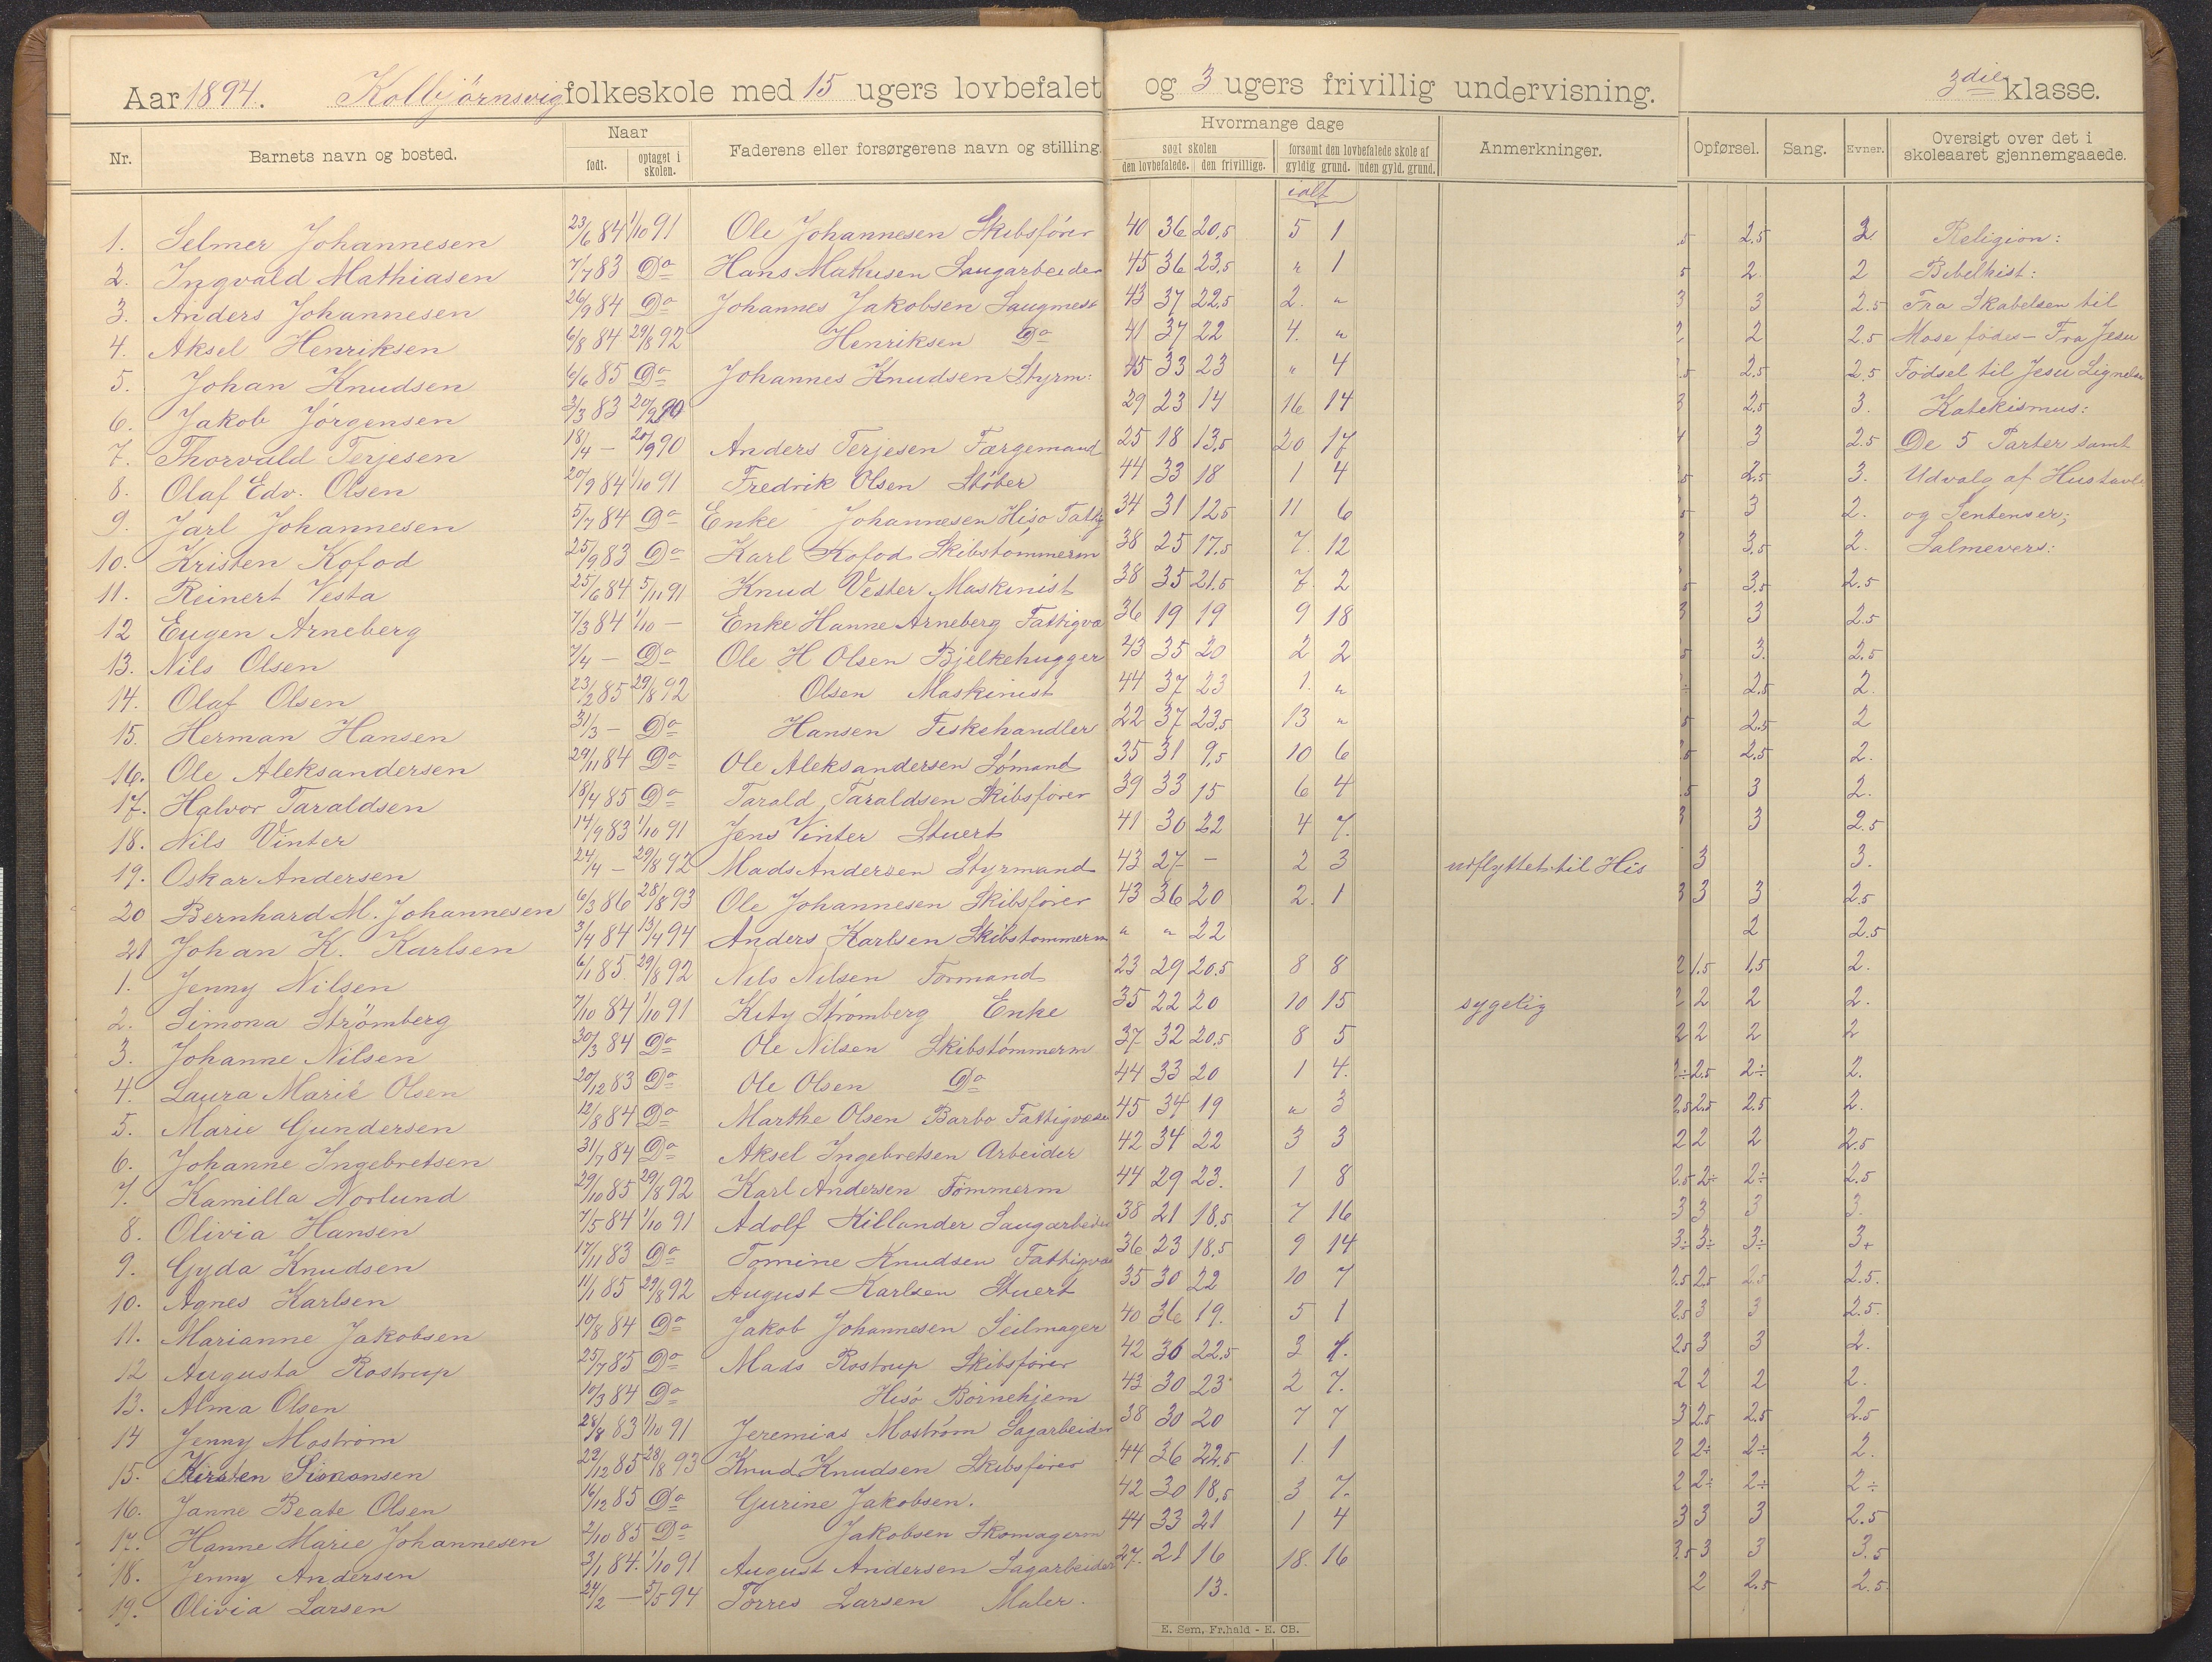 Aar 1894. Kolbjörnsvig folkeskole med 15 ugers lovbefalet og 3 ugers frivillig undervisning. 3die klasse.
Nr. Barnets navn og bosted. Naar født. optaget i skolen. Faderens eller forsørgerens navn og stilling. Hvormange dage søgt skolen den lovbefalede. den frivillige. forsømt den lovbefalede skole af gyldig grund. uden gyld. grund. Anmerkninger. Opførsel. Sang. Evner. Oversigt over det i skoleaaret gjennemgaaede.
ialt
1. Selmer Johannesen 23/6 84 1/10 91 Ole Johannesen Skibsfører 40 36 20,5 5 1 2.5 2 Religion:
2. Ingvald Mathiasen 7/7 83 Do Hans Mathisen Saugarbeider 45 36 23,5 " 1 2. 2 Bibelhist:
3. Anders Johannesen 26/9 84 Do Johannes Jakobsen Saugmest 43 37 22,5 2. " 3 3 2.5 Fra Skabelsen til
4. Aksel Henriksen 6/8 84 29/8 92 Henriksen Do 41 37 22 4. " 2 2 2.5 Mose fødes - Fra Jesu
5. Johan Knudsen 6/6 85 Do Johannes Knudsen Styrm: 45 33 23 " 4 2.5 2.5 Fødsel til Jesu Lignelser
6. Jakob Jörgensen 3/3 83 20/2 90 29 23 14 16 14 3 2.5 3. Katekismus:
7. Thorvald Terjesen 18/4 - 20/9 90 Anders Terjesen Færgemand 25 18 13,5 20 17 3 2.5 De 5 Parter samt
8. Olaf Edv. Olsen 20/9 84 1/10 91 Fredrik Olsen Støber 44 33 18 1 4 2.5 3. Udvalg af Hustavle
9. Jarl Johannesen 5/7 84 Do Enke Johannesen Hisø Fattig 34 31 12,5 11 6 3 2. og Sentenser;
10. Kristen Kofod 25/9 83 Do Karl Kofod Skibstømmerm 38 25 17.5 7. 12 3,5 2. Salmevers:
11. Reinert Vesta 25/6 84 5/11 91 Knud Vester Maskinist 38 35 21.5 7. 2 3,5 2.5
12 Eugen Arneberg 7/3 84 1/10 - Enke Hanne Arneberg Fattigvæ 36 19 19 9 18 3 3 2.5
13. Nils Olsen 7/4 - Do Ole H Olsen Bjelkehugger 43 35 20 2 2 3. 2.5
14. Olaf Olsen 23/2 85 29/8 92 Olsen Maskinist 44 37 23 1. " 2,5 2.
15. Herman Hansen 31/3 - Do Hansen Fiskehandler 22 37 23,5 13 " 2.5 2
16. Ole Aleksandersen 29/11 84 Do Ole Aleksandersen Sömand 35 31 9,5 10 6 2.5 2.
17. Halvor Taraldsen 18/4 85 Do Tarald Taraldsen Skibsfører 39 33 15 6 4 3 2.
18. Nils Vinter 14/9 83 1/10 91 Jens Vinter Stuert 41 30 22 4 7. 3 3 2.5
19. Oskar Andersen 24/4 - 29/8 92 Mads Andersen Styrmand 43 27 - 2 3 udflyttet til His 3 3.
20 Bernhard M. Johannesen 6/3 86 28/8 93 Ole Johannesen Skibsfører 43 36 20 2. 1 3 3 3 2.5
21 Johan K. Karlsen 3/4 84 13/4 94 Anders Karlsen Skibstommerm " " 22 2 2.5
1. Jenny Nilsen 6/1 85. 29/8 92 Nils Nilsen Formand 23 29 20.5 8 8 2 1.5 1,5 2.
2. Simona Strömberg 7/10 84 1/10 91 Kity Strömberg Enke 35 22 20 10 15 sygelig 2 2 2 2.
3. Johanne Nilsen 30/3 84 Do Ole Nilsen Skibstömmerm 37 32 20.5 8 5 2 2 2 2
4. Laura Marie Olsen 20/12 83 Do Ole Olsen Do 44 33 20 1 4. 2÷ 2.5 2÷ 2.
5. Marie Gundersen 12/8 84 Do Marthe Olsen Barbo Fattigvæsen 45 34 19 " 3 2.5 2.5 2.5 2.
6. Johanne Ingebretsen 31/7 84 Do Aksel Ingebretsen Arbeider 42 34 22 3 3 2 2 2 2.5
7. Kamilla Norlund 29/10 85 29/8 92 Karl Andersen Tömmerm 44 29 23. 1 8 2.5 2÷ 2÷ 2.5
8. Olivia Hansen 7/5 84 1/10 91 Adolf Killander Saugarbeider 38 21 18,5 7 16 3 3 3 3.
9. Gyda Knudsen 17/11 83 Do Tomine Knudsen Fattigvæ 36 23 18.5 9 14 3÷ 3÷ 3÷ 3+
10. Agnes Karlsen 11/1 85 29/8 92 August Karlsen Stuert 35 30 22 10 7 2.5 2.5 2.5 2.5.
11. Marianne Jakobsen 10/8 84 Do Jakob Johannesen Seilmager 40 36 19. 5 1 2.5 3 3 2.5.
12 Augusta Rostrup 25/7 85 Do Mads Rostrup Skibsfører 42 36 22.5 3 1. 2.5 3 3 2.
13. Alma Olsen 10/3 84 Do Hisö Börnehjem 43 30 23 2 7. 2 2 2 2.
14 Jenny Moström 28/8 83 1/10 91 Jeremias Moström Sagarbeider 38 30 20 7 7 3 2.5 2.5 2.5
15. Kirsten Simonsen 29/12 85 28/8 93 Knud Knudsen Skibsfører 44 36 22.5 1. 1 2 2÷ 2÷ 2.
16. Janne Beate Olsen 16/12 85 Do Gurine Jakobsen. 42 30 18,5 3 7. 2 2÷ 2÷ 2÷
17. Hanne Marie Johannesen 2/10 85 Do Jakobsen Skomagerm 44 33 21 1 4 3 3 3 2.5
18. Jenny Andersen 3/1 84. 1/10 91 August Andersen Sagarbeider 27. 21 16 18. 16 3.5 3 3 3.5
19. Olivia Larsen 24/2 - 5/5 94 Torres Larsen Maler. 13. 2 2.5 2.5
E. Sem, Fr.hald - E. CB.